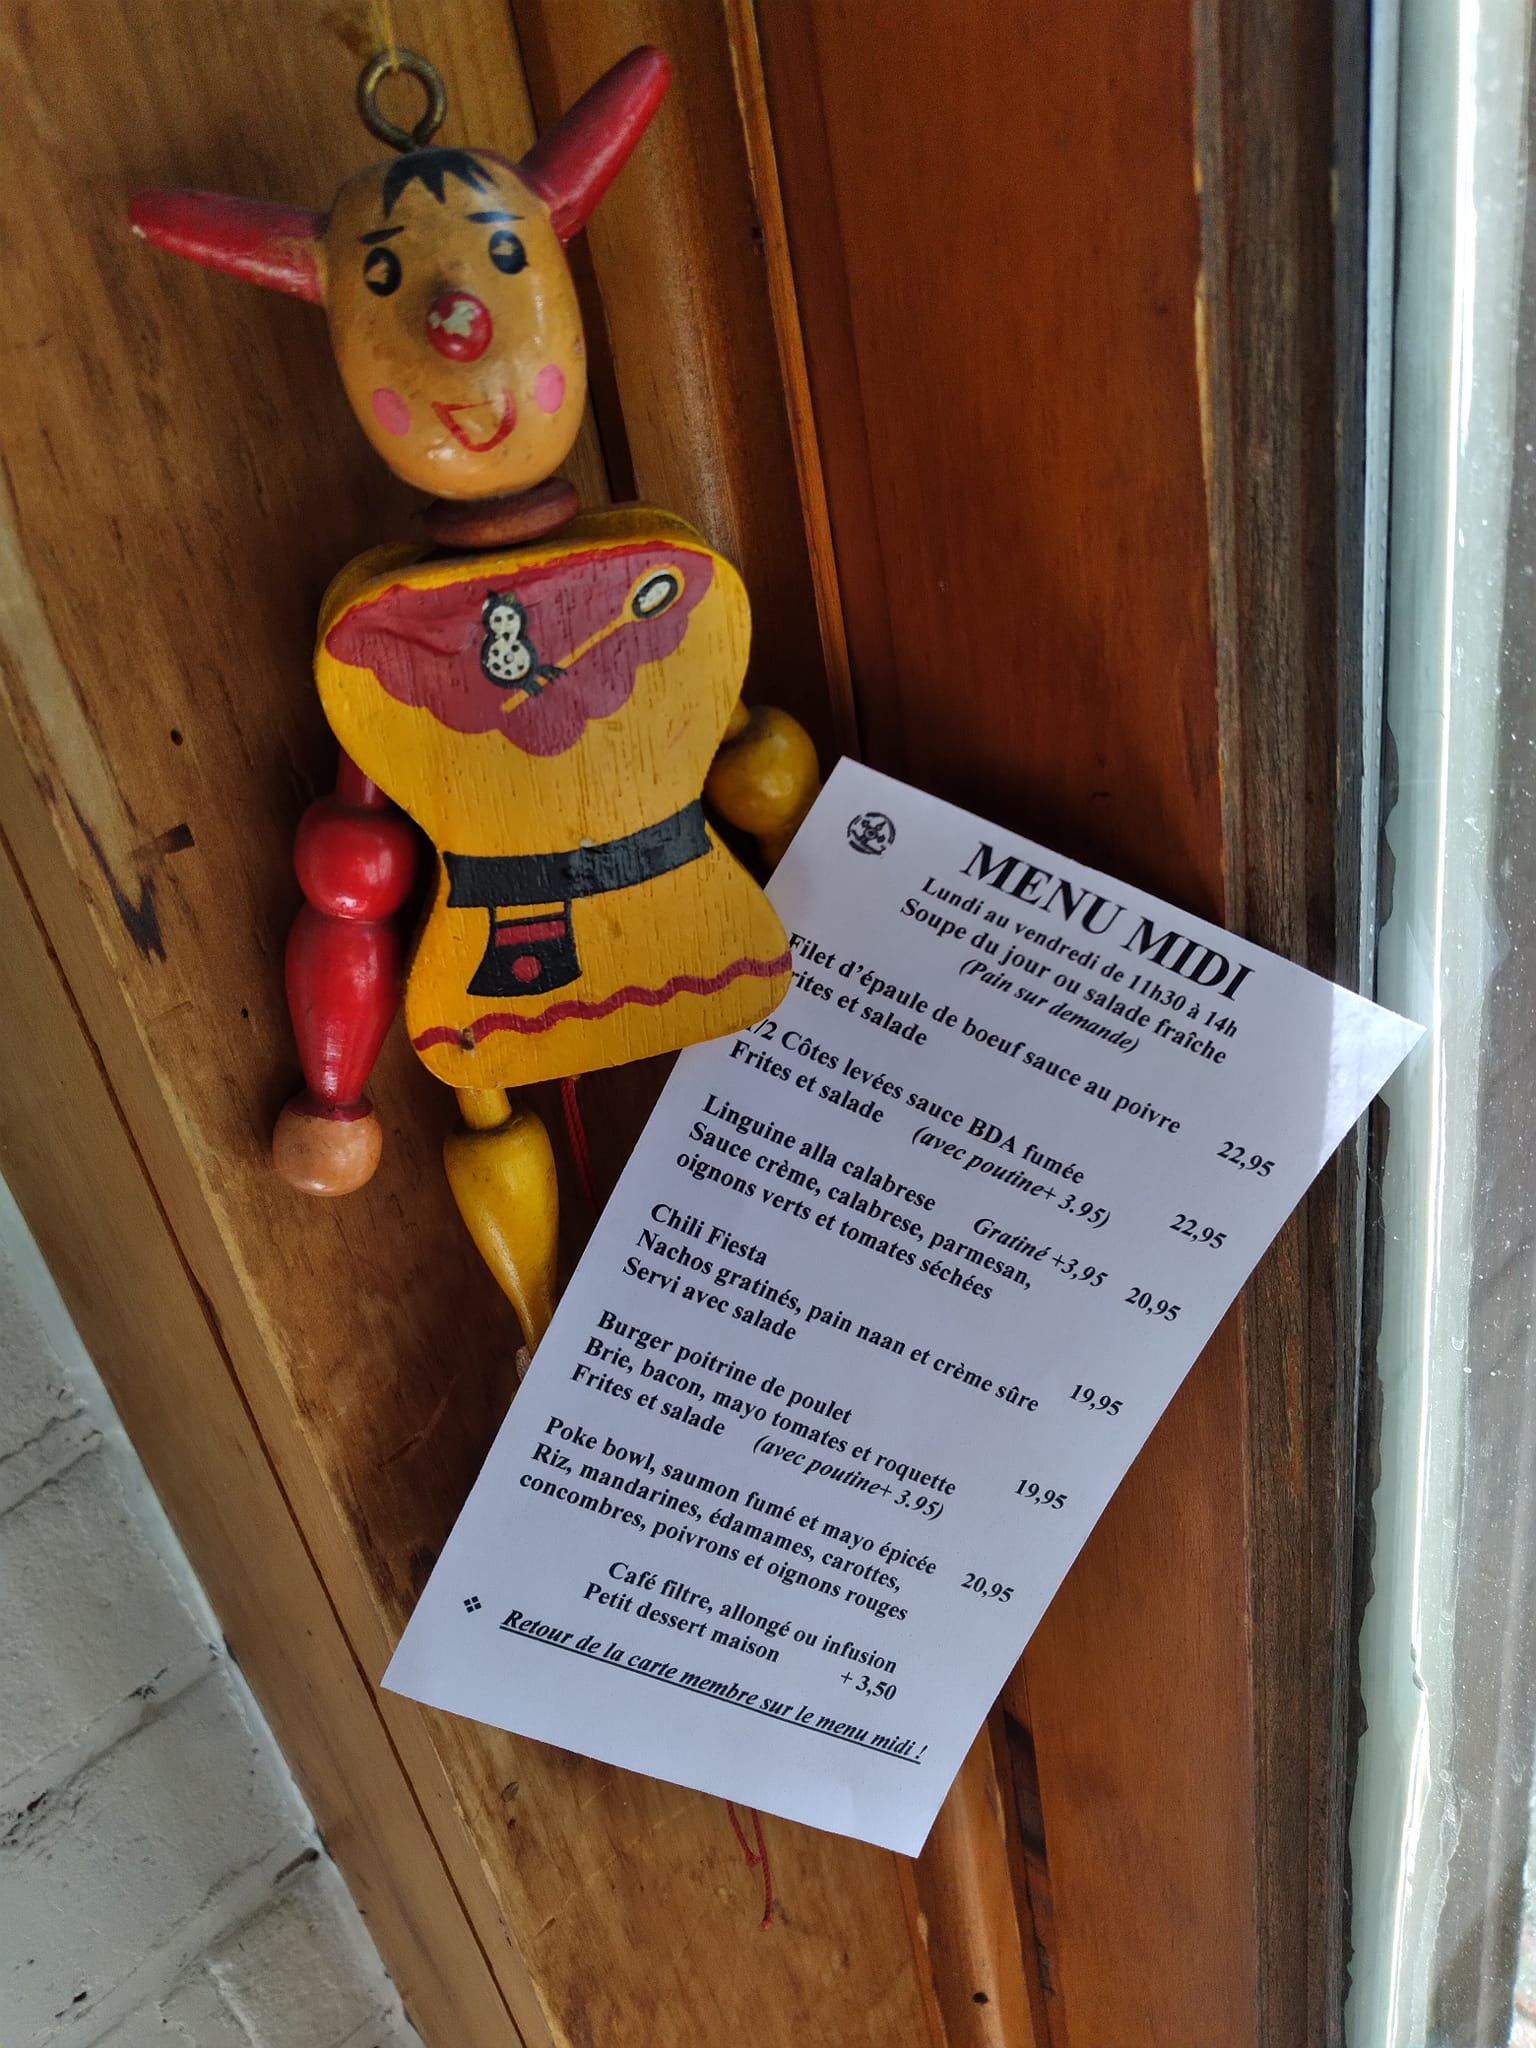 MENU MIDI
Lundi au vendredi de 11h30 à 14h
Soupe du jour ou salade fraîche
(Pain sur demande)
Filet d'épaule de boeuf sauce au poivre
rites et salade 22,95
1/2 Côtes levées sauce BDA fumée
Frites et salade (avec poutine+ 3.95) 22,95
Linguine alla calabrese Gratiné +3,95 20,95
Sauce crème, calabrese, parmesan,
oignons verts et tomates séchées
Chili Fiesta
Nachos gratinés, pain naan et crème sûre 19,95
Servi avec salade
Burger poitrine de poulet
Brie, bacon, mayo tomates et roquette 19,95
Frites et salade (avec poutine+ 3.95)
Poke bowl, saumon fumé et mayo épicée 20,95
Riz, mandarines, édamames, carottes,
concombres, poivrons et oignons rouges
Café filtre, allongé ou infusion
Petit dessert maison + 3,50
❖ Retour de la carte membre sur le menu midi !